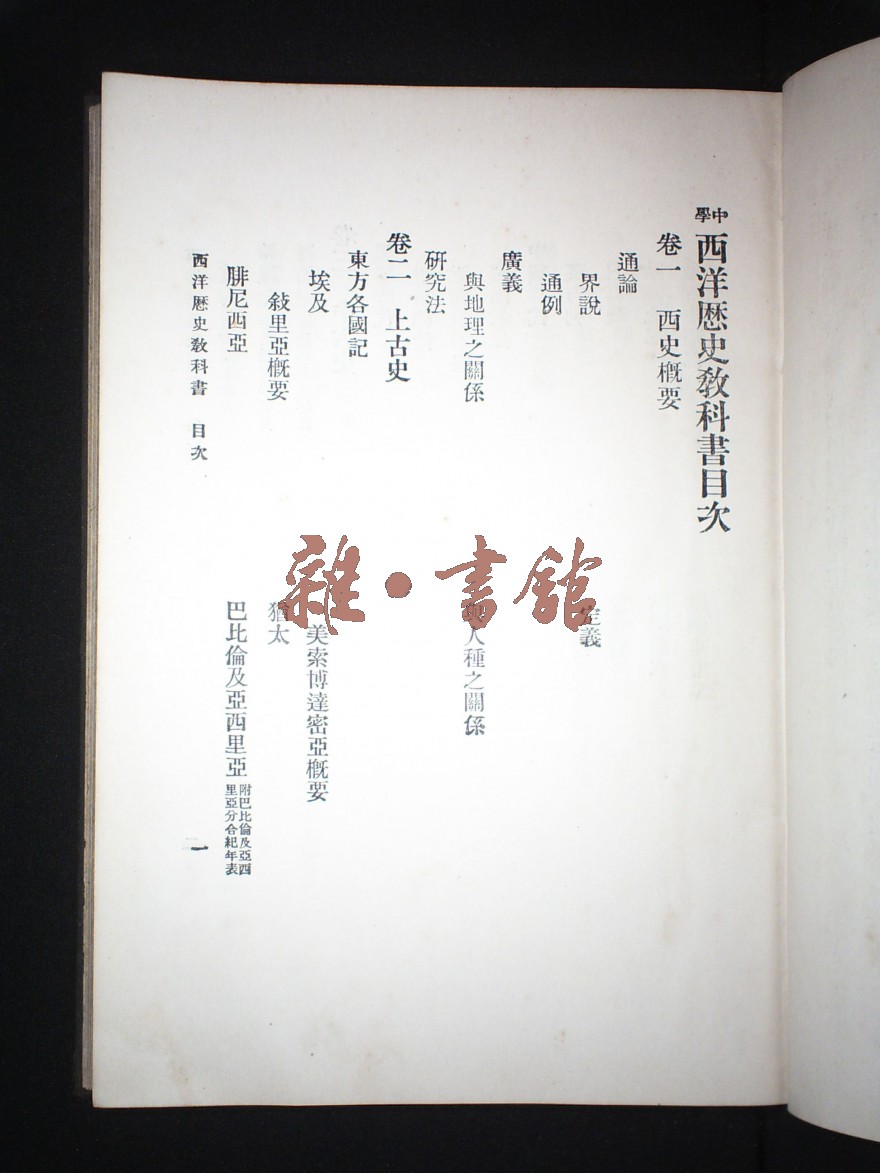 中學西洋歷史敎科書目次
卷一　西史槪要
通論
界說　定義
通例
廣義
與地理之關係　與人種之關係
研究法
卷二　上古史
東方各國記
埃及　美索博達密亞槪要
敍里亞槪要　猶太
腓尼西亞　巴比倫及亞西里亞
附巴比倫及亞西
里亞分合紀年表
西洋歷史敎科書　目次　一
雜·書館